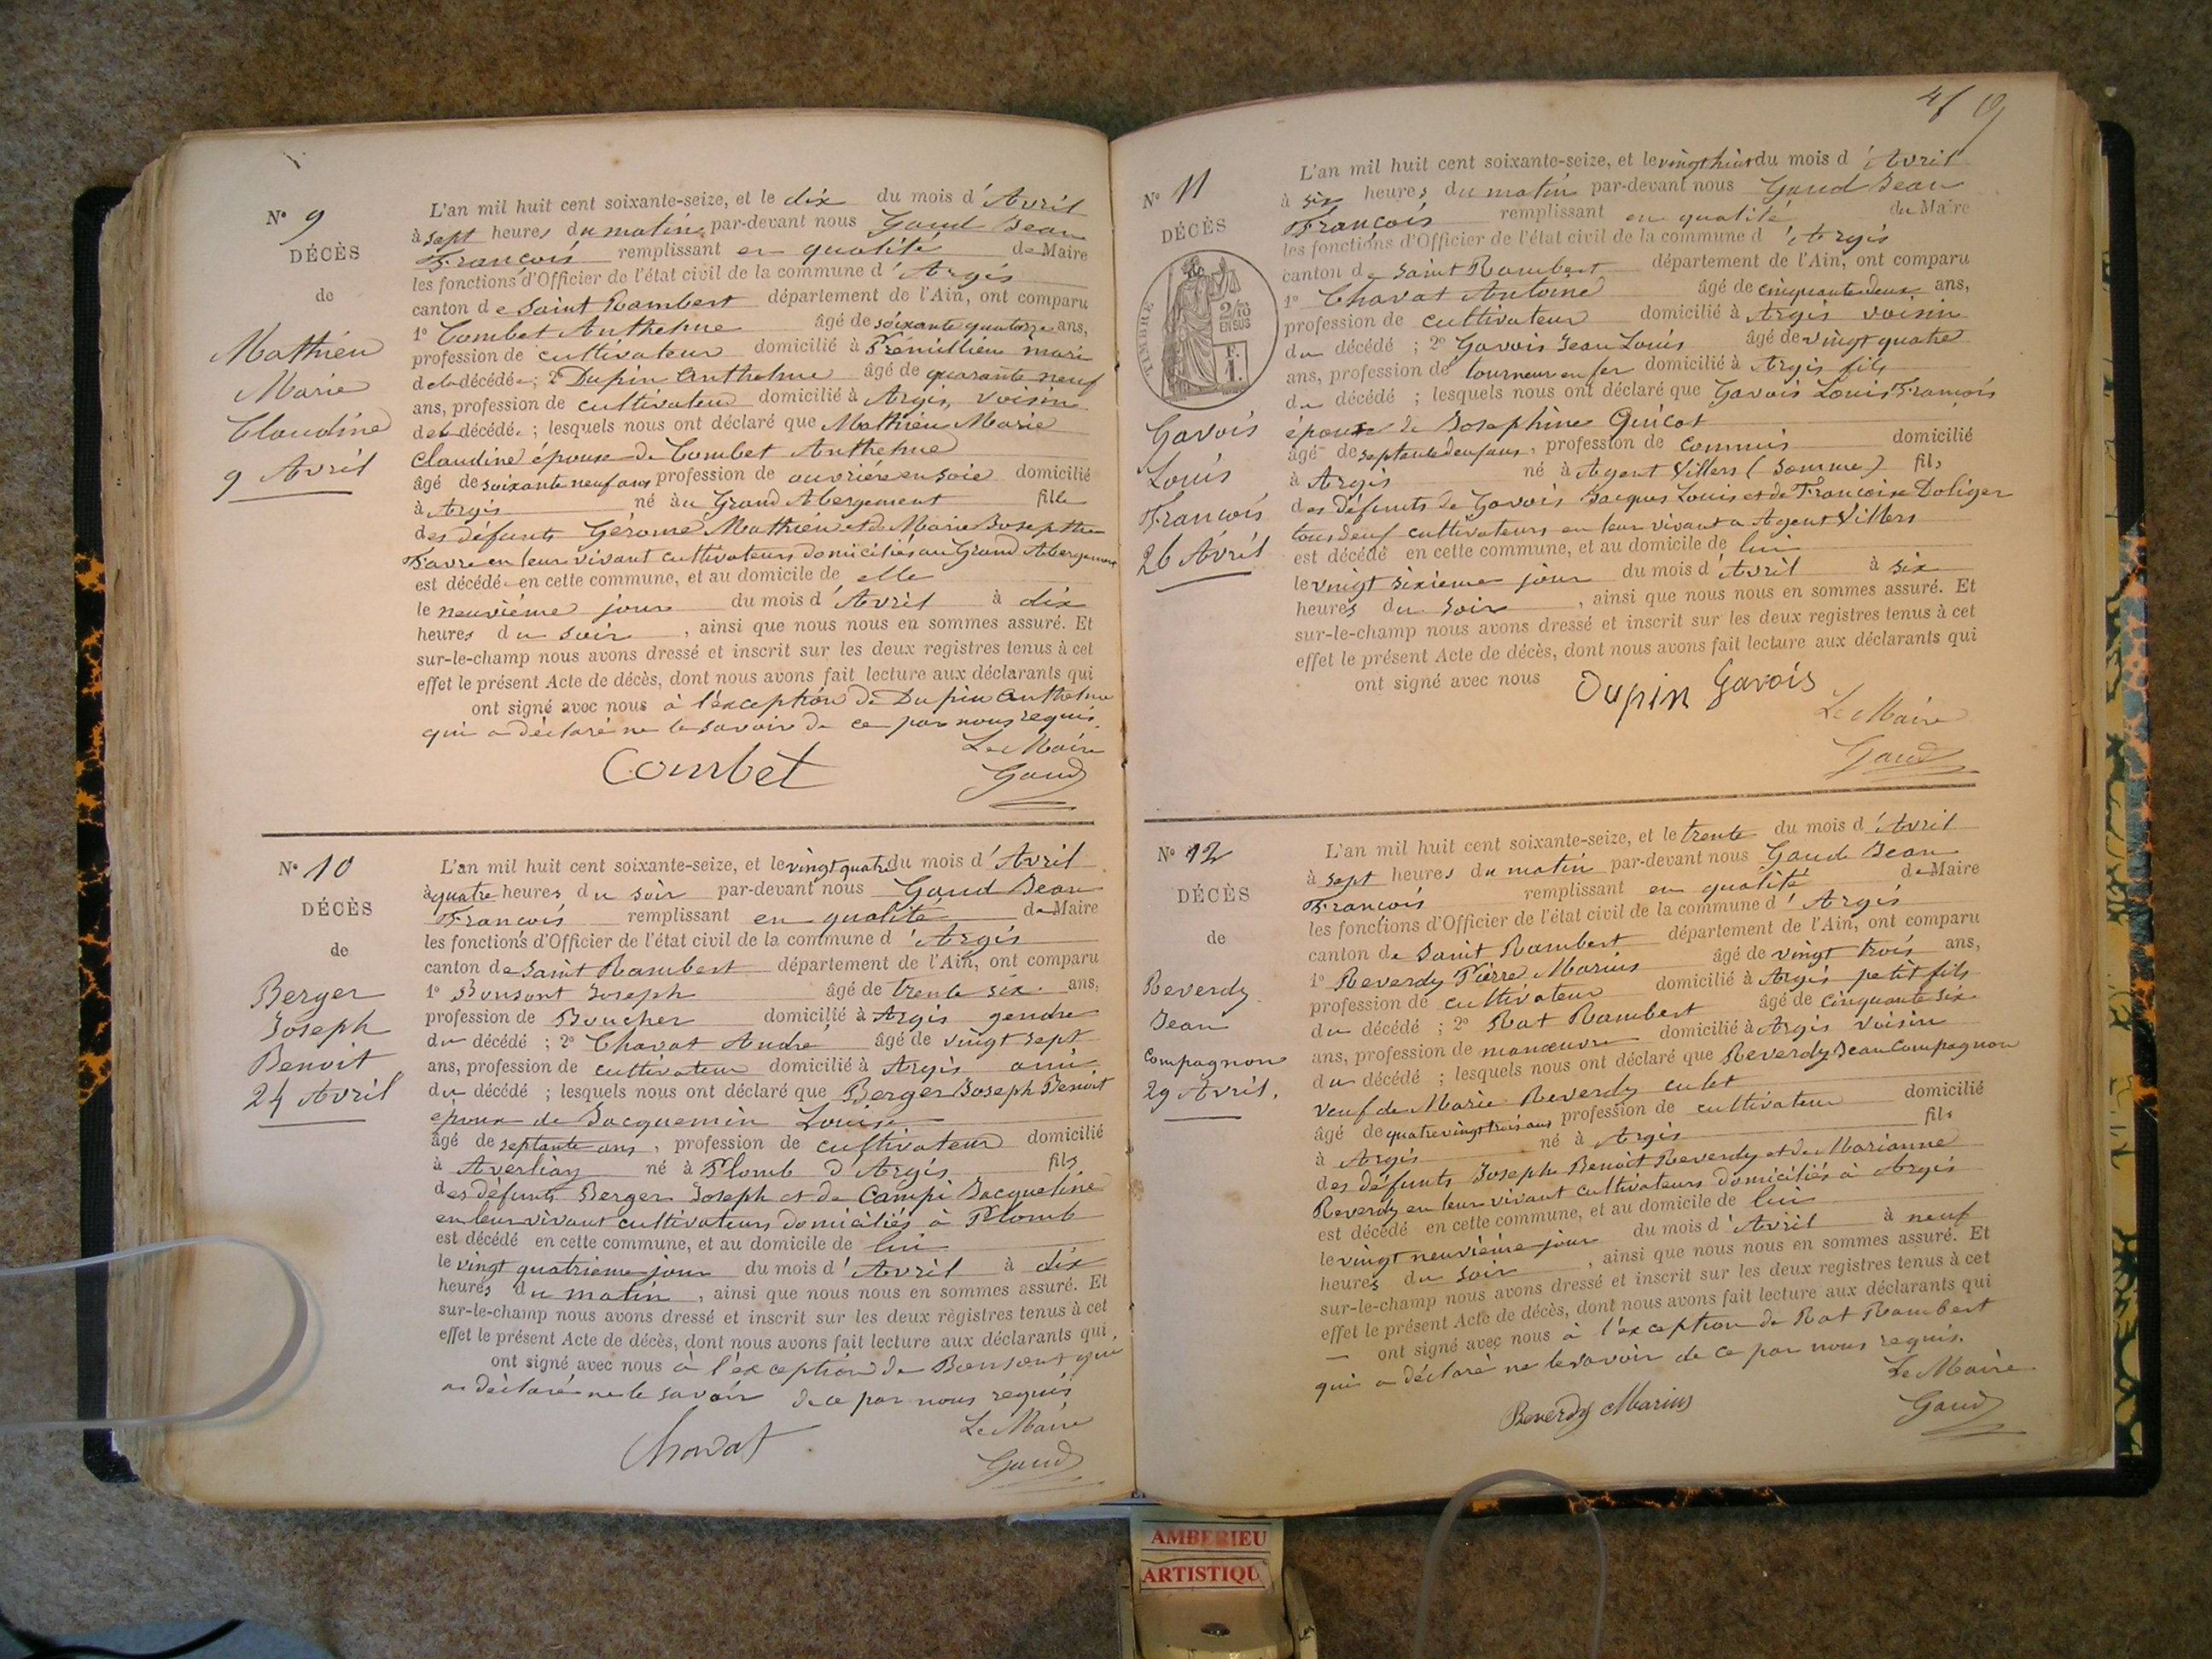 N° 9
DÉCÈS
de
Mathieu
Marie
Claudine
9 Avril
L'an mil huit cent soixante-seize, et le dix du mois d'Avril
à sept heures du matin par-devant nous Gaud Jean
François remplissant en qualité de Maire
les fonctions d'Officier de l'état civil de la commune d'Argis
canton de Saint Rambert département de l'Ain, ont comparu
1° Combet Anthelme âgé de soixante quatorze ans,
profession de cultivateur domicilié à mari
de la décédée; 2° Dupin Anthelme âgé de quarante neuf
ans, profession de cultivateur domicilié à Argis, voisin
de la décédée; lesquels nous ont déclaré que Mathieu Marie
Claudine épouse de Combet Anthelme
âgé de soixante neuf ans profession de ouvrière en soie domicilié
à Argis né au Grand Abergement fille
des défunts Gérome Mathieu et de Marie Josepthe
Favre en leur vivant cultivateurs domiciliés au Grand Abergement
est décédée en cette commune, et au domicile de elle
le neuvième jour du mois d'Avril à dix
heures du soir, ainsi que nous nous en sommes assuré. Et
sur-le-champ nous avons dressé et inscrit sur les deux registres tenus à cet
effet le présent Acte de décès, dont nous avons fait lecture aux déclarants qui
ont signé avec nous à l'exception de Dupin Anthelme
qui a déclaré ne le savoir de ce par nous requis.
Le Maire
Combet
Gaud
N° 10
DÉCÈS
de
Berger
Joseph
Benoit
24 Avril
L'an mil huit cent soixante-seize, et le vingt quatre du mois d'Avril
à quatre heures du soir par-devant nous Gaud Jean
François remplissant en qualité de Maire
les fonctions d'Officier de l'état civil de la commune d'Argis
canton de Saint Rambert département de l'Ain, ont comparu
1° Bonsont Joseph âgé de trente six ans,
profession de Boucher domicilié à Argis gendre
du décédé; 2° Chavat André âgé de vingt sept
ans, profession de cultivateur domicilié à Argis ami
du décédé; lesquels nous ont déclaré que Berger Joseph Benoit
époux de Jacquemin Louise
âgé de septante ans, profession de cultivateur domicilié
à né à Plomb d'Argis fils
des défunts Berger Joseph et de Campi Jacqueline
en leur vivant cultivateurs domiciliés à Plomb
est décédé en cette commune, et au domicile de lui
le vingt quatrième jour du mois d'Avril à dix
heures du matin, ainsi que nous nous en sommes assuré. Et
sur-le-champ nous avons dressé et inscrit sur les deux registres tenus à cet
effet le présent Acte de décès, dont nous avons fait lecture aux déclarants qui
ont signé avec nous à l'exception de Bonsont qui
a déclaré ne le savoir de ce par nous requis
Le Maire
Chavat
Gaud
N° 11
DÉCÈS
TIMBRE
2/10
EN SUS
F.
1.
Gavois
Louis
François
26 Avril
L'an mil huit cent soixante-seize, et le du mois d'Avril
à six heures du matin par-devant nous Gaud Jean
François remplissant en qualité de Maire
les fonctions d'Officier de l'état civil de la commune d'Argis
canton de Saint Rambert département de l'Ain, ont comparu
1° Chavat Antoine âgé de cinquante deux ans,
profession de cultivateur domicilié à Argis voisin
du décédé; 2° Gavois Jean Louis âgé de vingt quatre
ans, profession de tourneur en fer domicilié à Argis fils
du décédé; lesquels nous ont déclaré que Gavois Louis François
époux de Josephine Quicot
âgé de septante deux ans, profession de commis domicilié
à Argis né à Agent Villers (Somme) fils
des défunts de Gavois Jacques Louis et de Françoise Doliger
tous deux cultivateurs en leur vivant a Agent Villers
est décédé en cette commune, et au domicile de lui
le vingt sixieme jour du mois d'Avril à six
heures du soir, ainsi que nous nous en sommes assuré. Et
sur-le-champ nous avons dressé et inscrit sur les deux registres tenus à cet
effet le présent Acte de décès, dont nous avons fait lecture aux déclarants qui
ont signé avec nous
Dupin Gavois
Le Maire
Gaud
N° 12
DÉCÈS
de
Reverdy
Jean
Compagnon
29 Avril.
L'an mil huit cent soixante-seize, et le trente du mois d'Avril
à sept heures du matin par-devant nous Gaud Jean
François remplissant en qualité de Maire
les fonctions d'Officier de l'état civil de la commune d'Argis
canton de Saint Rambert département de l'Ain, ont comparu
1° Reverdy Pierre Marius âgé de vingt trois ans,
profession de cultivateur domicilié à Argis petit fils
du décédé; 2° Rat Rambert âgé de cinquante six
ans, profession de manœuvre domicilié à Argis voisin
du décédé; lesquels nous ont déclaré que Reverdy Jean Compagnon
veuf de Marie Reverdy culet
âgé de quatre vingt trois ans profession de cultivateur domicilié
à Argis né à Argis fils
des défunts Joseph Benoit Reverdy et de Marianne
Reverdy en leur vivant cultivateurs domiciliés à Argis
est décédé en cette commune, et au domicile de lui
le vingt neuvième jour du mois d'Avril à neuf
heures du soir, ainsi que nous nous en sommes assuré. Et
sur-le-champ nous avons dressé et inscrit sur les deux registres tenus à cet
effet le présent Acte de décès, dont nous avons fait lecture aux déclarants qui
ont signé avec nous à l'exception de Rat Rambert
qui a déclaré ne le savoir de ce par nous requis.
Le Maire
Reverdy Marius
Gaud
AMBERIEU
ARTISTIQU